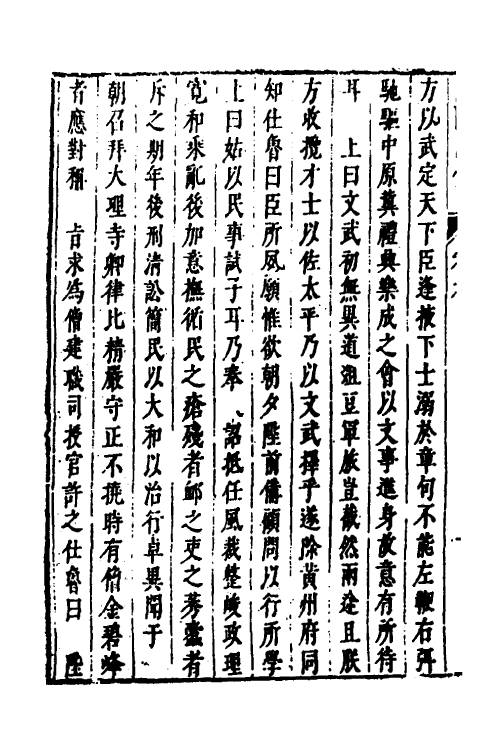 方以武定天下臣逢掖下士溺於章句不能左鞭右弭
馳驅中原冀禮興樂成之會以文事進身故意有所待
耳　上曰文武初無異道俎豆軍旅豈截然兩途且朕
方收攬才士以佐太平乃以文武擇乎遂除黃州府同
知仕魯曰臣所夙願惟欲朝夕陛前備顧問以行所學
上曰姑以民事試子耳乃奉　詔抵任風裁整峻政理
寬和來亂後加意撫循民之瘡殘者卹之吏之莠蠹者
斥之期年後刑清訟簡民以大和以治行卓異聞于
朝召拜大理寺卿律比精嚴守正不撓時有僧金碧峰
者應對稱　旨求為僧建職司授官許之仕魯曰　陛